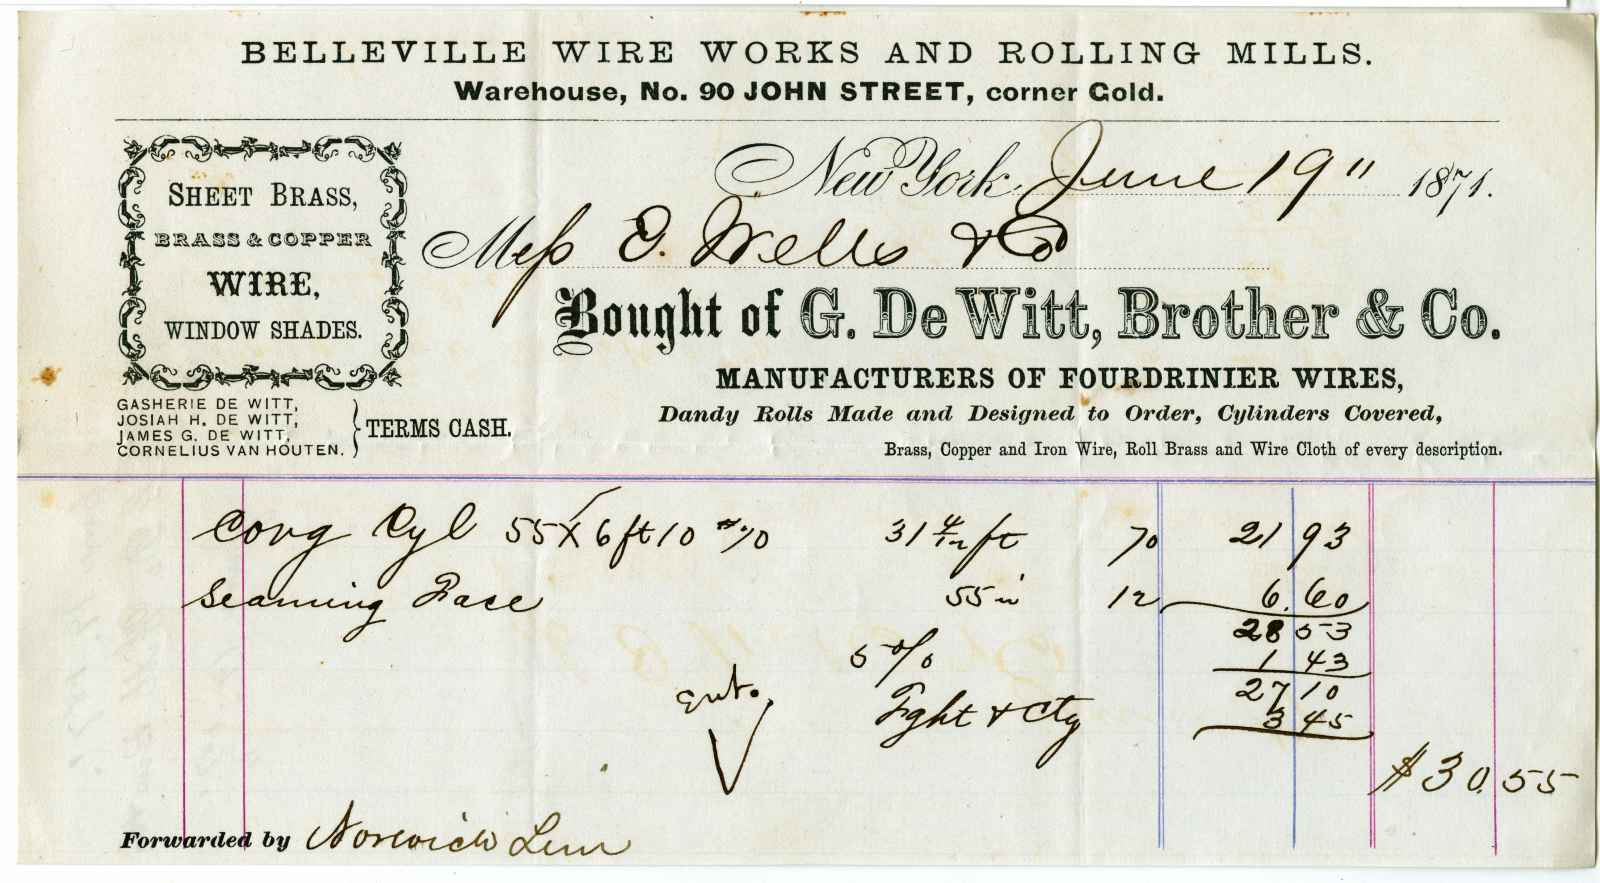 BELLEVILLE WIRE WORKS AND ROLLING MILLS.
Warehouse, No. 90 JOHN STREET, corner Gold.
SHEET BRASS,
BRASS & COPPER
WIRE,
WINDOW SHADES.
New York, June 19" 1871.
Mess E. Wells & Co
Bought of G. De Witt, Brother & Co.
MANUFACTURERS OF FOURDRINIER WIRES,
Dandy Rolls Made and Designed to Order, Cylinders Covered,
Brass, Copper and Iron Wire, Roll Brass and Wire Cloth of every description.
GASHERIE DE WITT,
JOSIAH H. DE WITT,
JAMES G. DE WITT,
CORNELIUS VAN HOUTEN.
TERMS CASH.
Covg Cyl 55 X 6 ft 10 # 70 31 4/12 ft 70 21 93
Seaming Face 55 in 12 6.60
28 53
5 % 1 43
27 10
Ent. Fght & Ctg 3 45
$30.55
Forwarded by Norwich Line